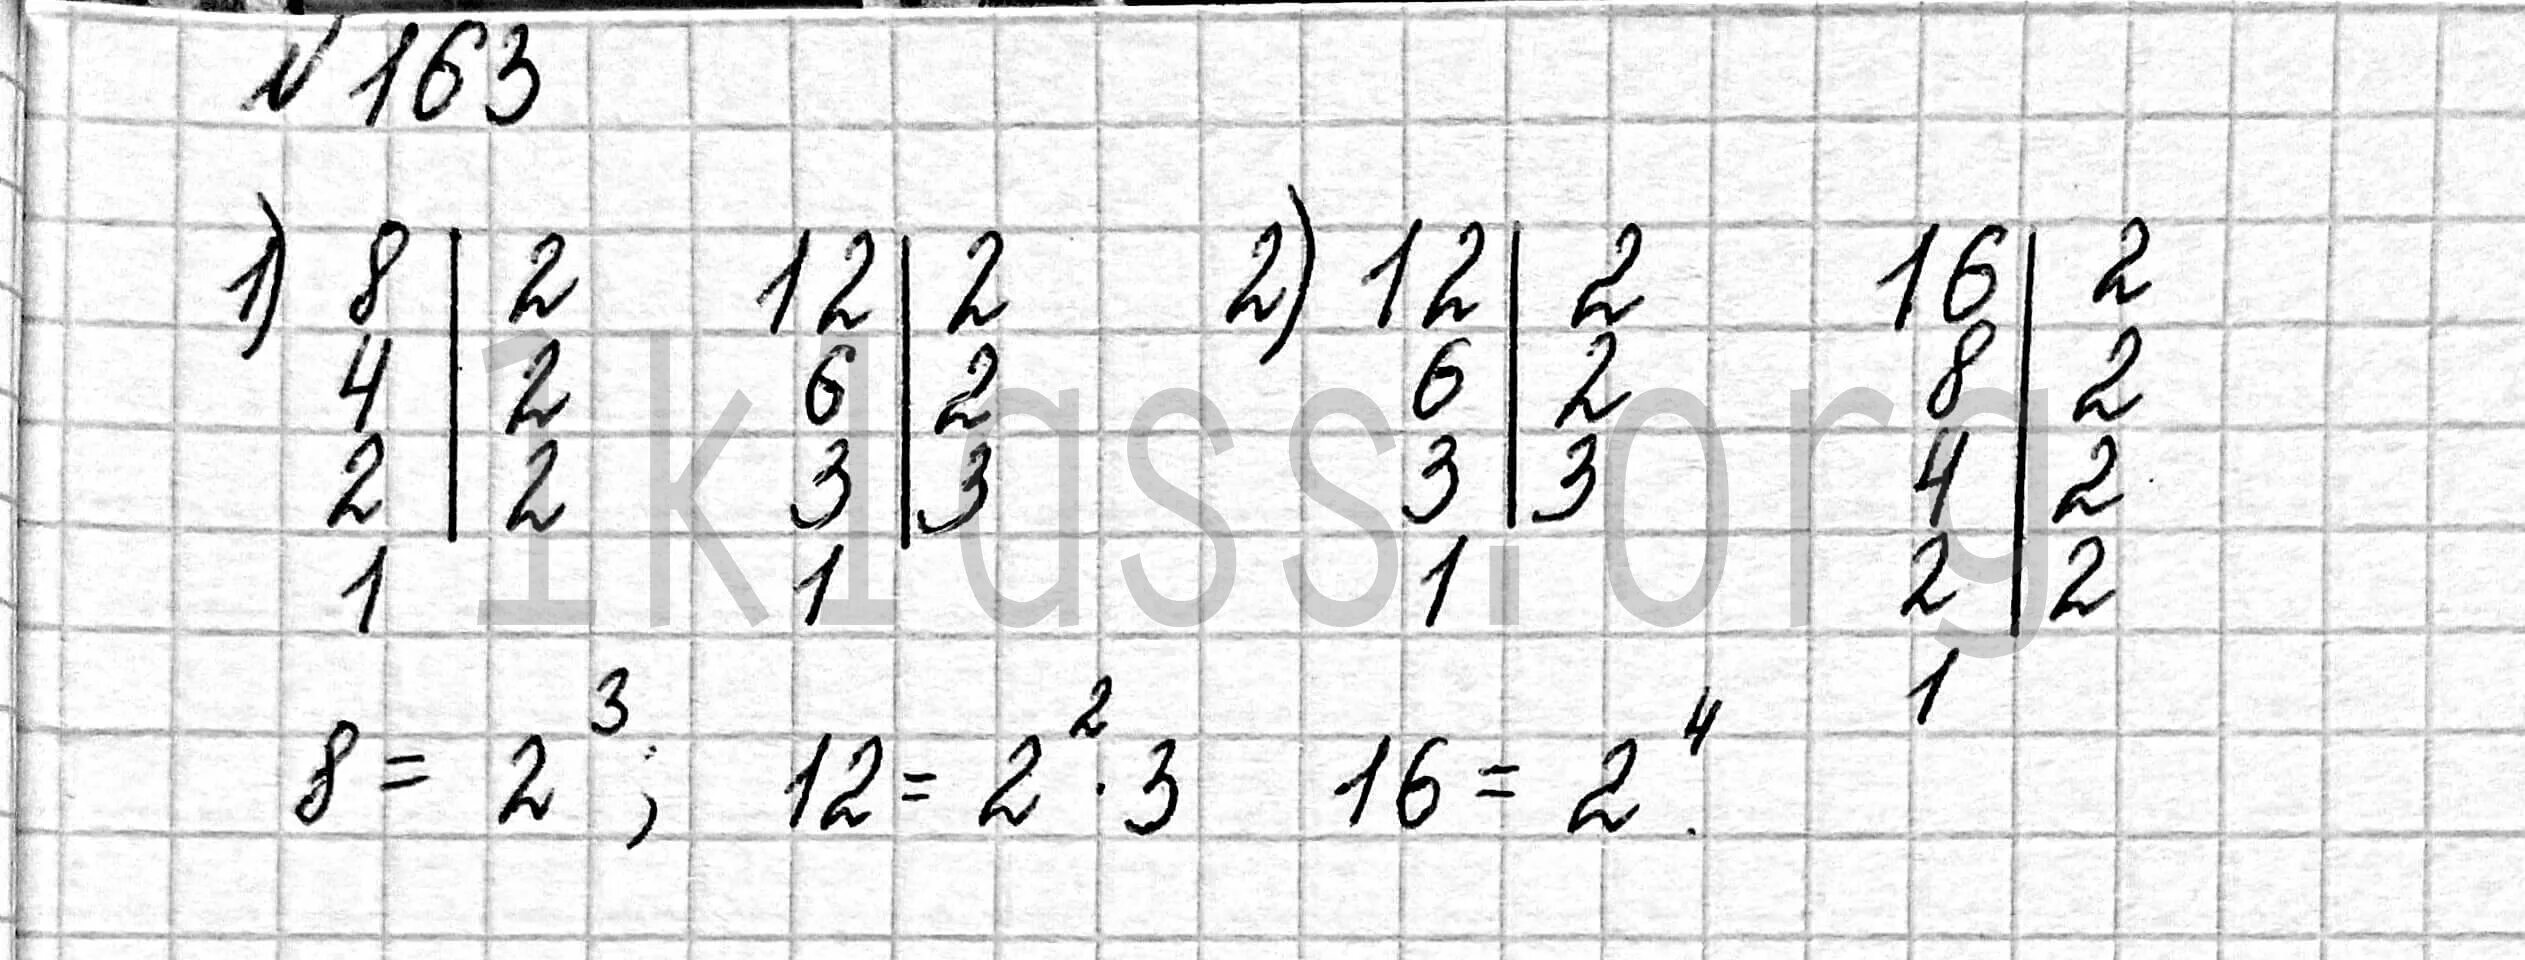 № 163
1) 8 | 2 12 | 2 2) 12 | 2 16 | 2
4 | 2 6 | 2 6 | 2 8 | 2
2 | 2 3 | 3 3 | 3 4 | 2
1 1 1 2 | 2
1
8 = 2³; 12 = 2² · 3 16 = 2⁴.
1klass.org